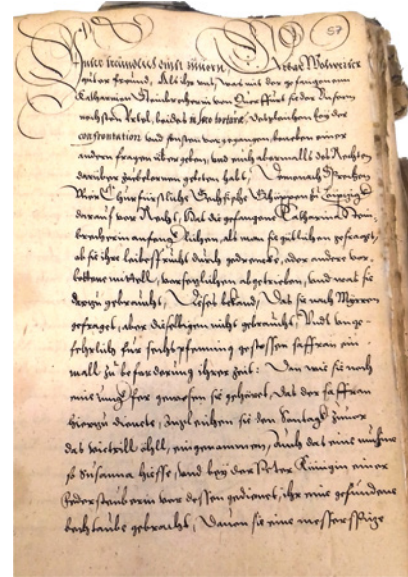 57
Unser freundlich dienst zuvorn, Erbar Wolweiser
guter freund, Als ihr uns, was mit der gefangenenn
Catharinen Steinbrecherin von Querffurt sieder Unserm
nechsten Urtel, beides in loco torturæ, desgleichen bey der
confrontation und sonsten vorgegangen, beneben einer
andern fragen ubergeben, und euch abermalls des Rechten
daruber zubelernen gebeten habt, Demenach Sprechen
Wir Churfürstliche Sechsische Schöppen zu Leipzigk
darauf vor Recht, Hat die gefangene Catharina Stein-
brecherin anfenglichen, als man sie gütlichen gefragt,
ob sie ihre leibesfrucht durch getrencke, oder andere vor-
bottene mittell, vorsetzlichen abgetrieben, und was sie
darzu gebraucht, Dieses bekand, Das sie nach Myrren
gefraget, aber dieselbigen nicht gebraucht, Undt unge-
fehrlich für sechs pfenning gestossen saffran ein-
mall zu beforderung ihrer zeit: Dan wie sie noch
eine Jungfer gewesen sie gehöret, das der saffran
hierzu dienete, Ingleichen sie den Sontagk zuvor
das victrill öhll, eingenommen, Auch das eine muhme
so Susanna hiesse, und bey der Peter Königin einer
Federsteuberin vor dessen gedienet, ihr eine gesundene
bechtaube gebracht, Davon sie eine messerspitze